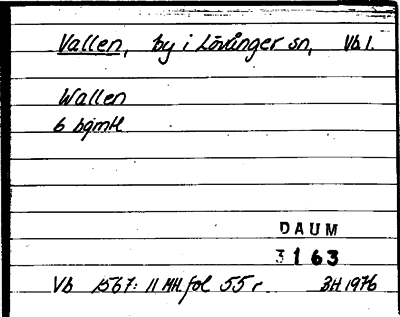 Vallen, by i Lövånger sn, Vb l.
Wallen
6 bgmtl
DAUM
3163
Vb 1567: 11 MH fol 55 r. BH 1976